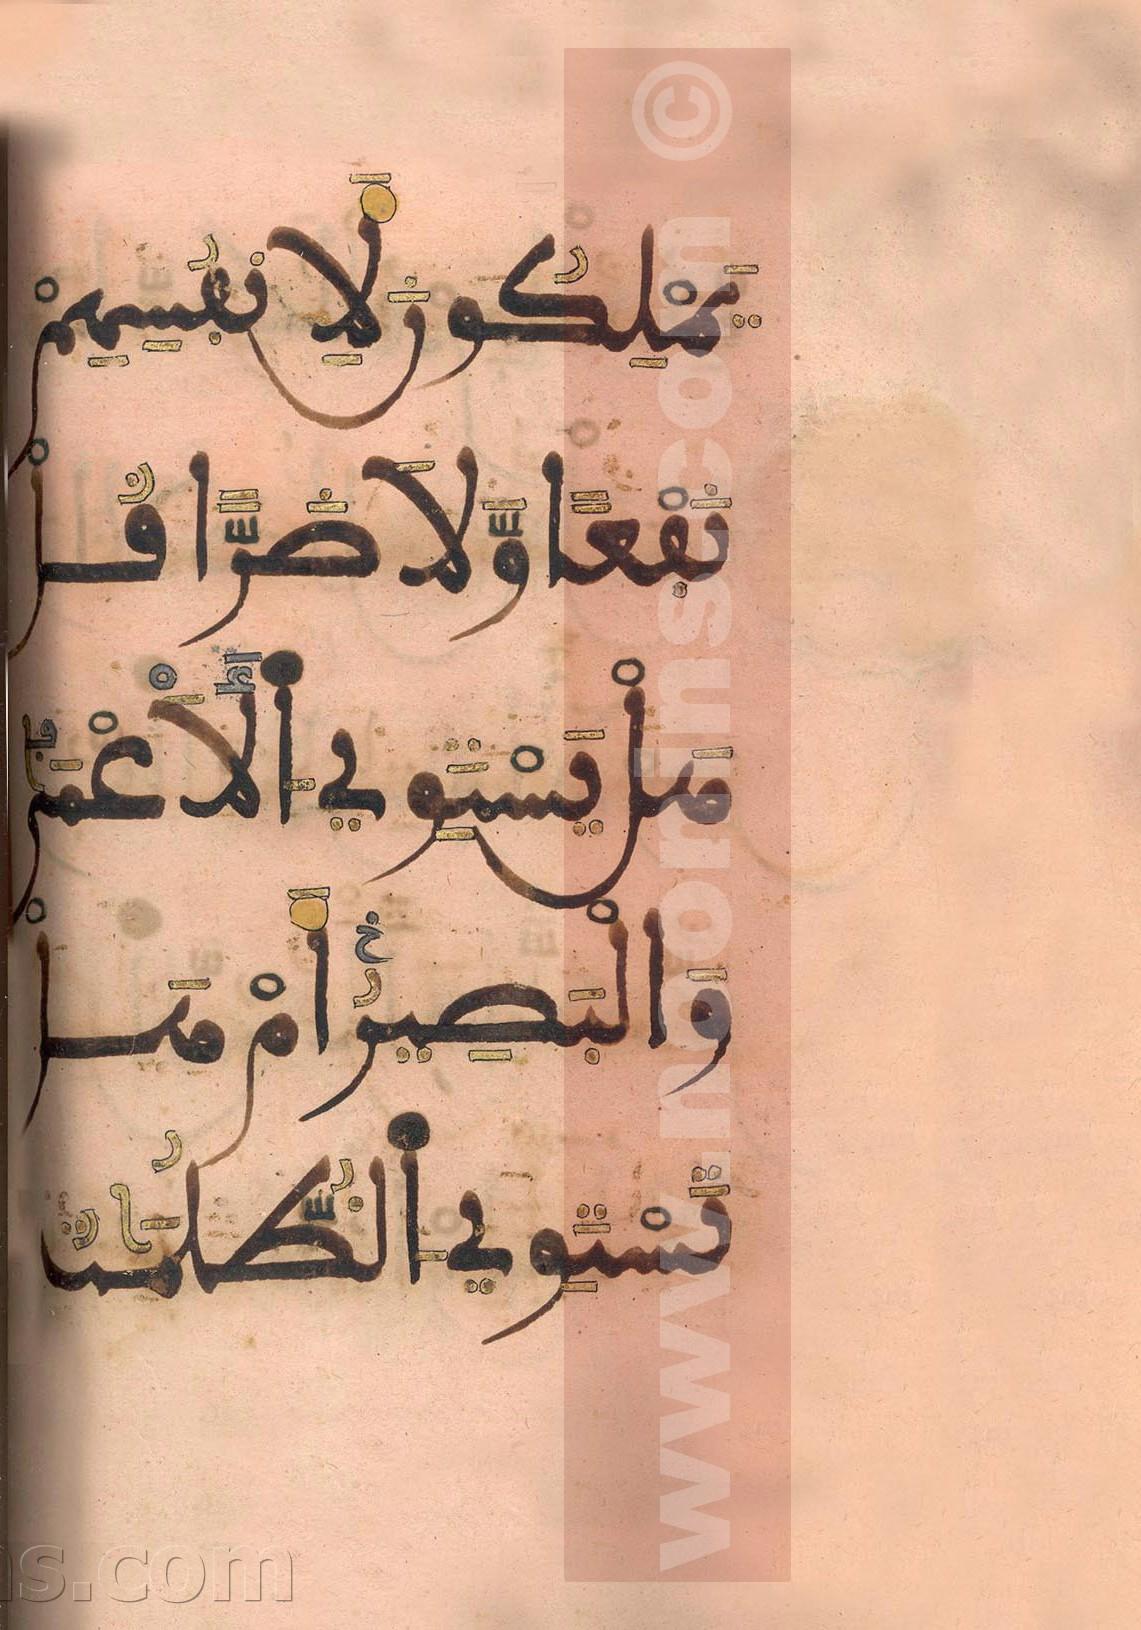 يَمْلِكُونَ لِأَنفُسِهِمْ
نَفْعًا وَّلَا ضَرًّا قُلْ
هَلْ يَسْتَوِي ٱلْأَعْمَىٰ
وَالْبَصِيرُ أَمْ هَلْ
تَسْتَوِي ٱلظُّلُمَاتُ
www.noorinsc.com ©
ns.com